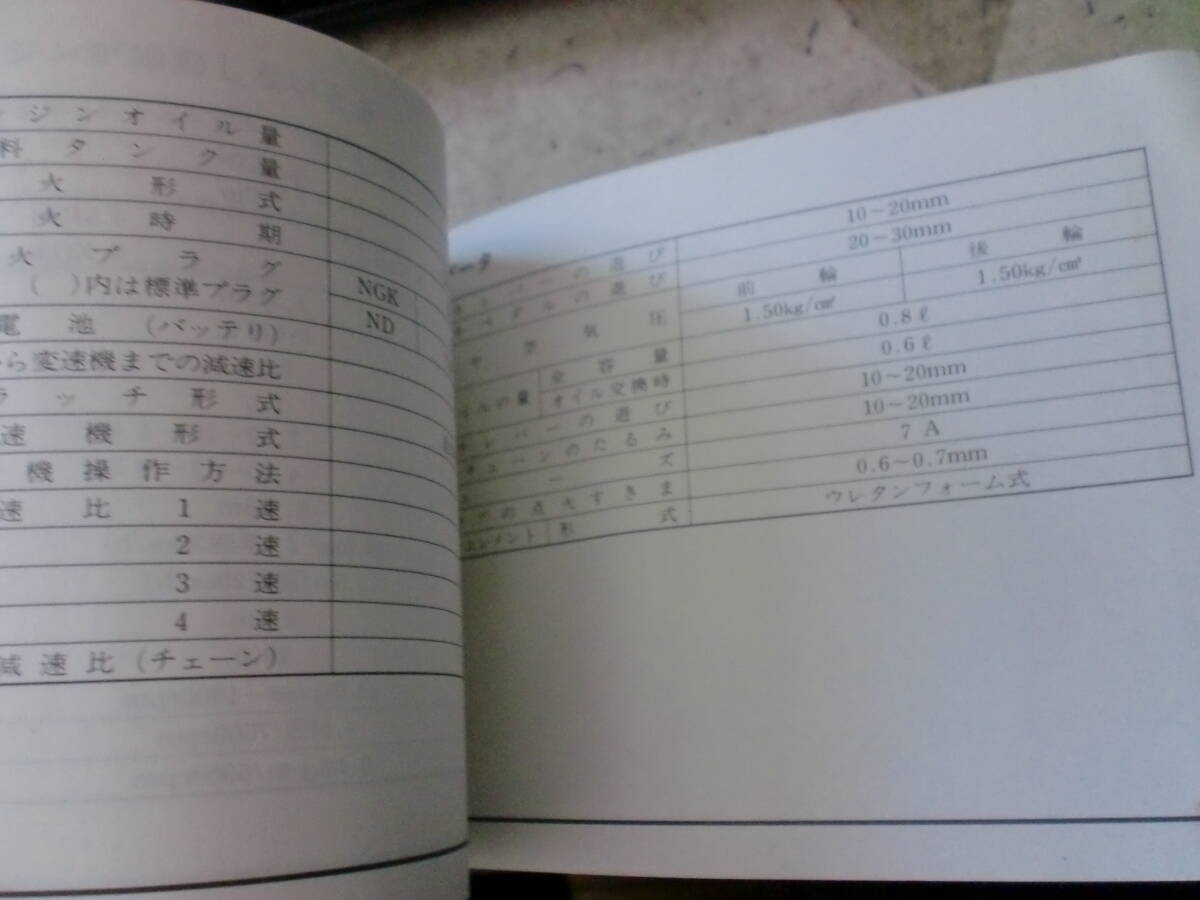 ジンオイル量
料タンク量
火形式
火時期
火プラグ
( )内は標準プラグ
NGK
ND
電池(バッテリ)
から変速機までの減速比
ラッチ形式
速機形式
機操作方法
速比1速
2速
3速
4速
減速比(チェーン)
ータ
レバーの遊び 10~20mm
ペダルの遊び 20~30mm
ヤ空気圧 前輪 後輪
1.50kg/cm² 1.50kg/cm²
イルの量 全容量 0.8ℓ
オイル交換時 0.6ℓ
レバーの遊び 10~20mm
チェーンのたるみ 10~20mm
ーズ 7A
グの点火すきま 0.6~0.7mm
エレメント 形式 ウレタンフォーム式